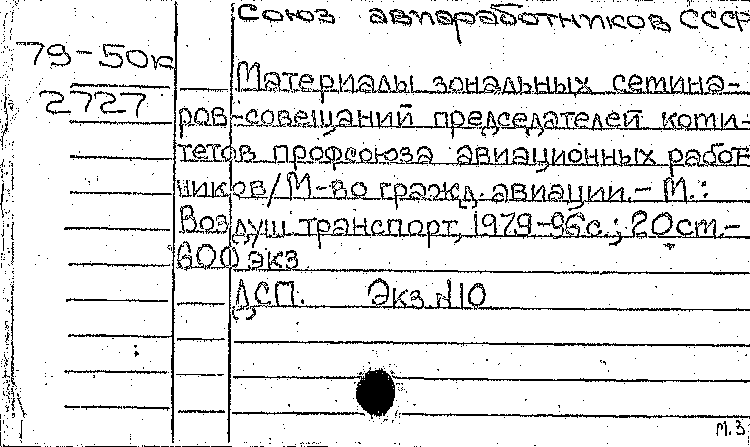 Союз авиаработников СССР
79-50к
2727
Материалы зональных семина-
ров-совещаний председателей коми-
тетов профсоюза авиационных работ
ников/М-во гражд. авиации.- М.:
Воздуш транспорт, 1979-96с.; 20см.-
600 экз
ДСП. Экз N10
М.З